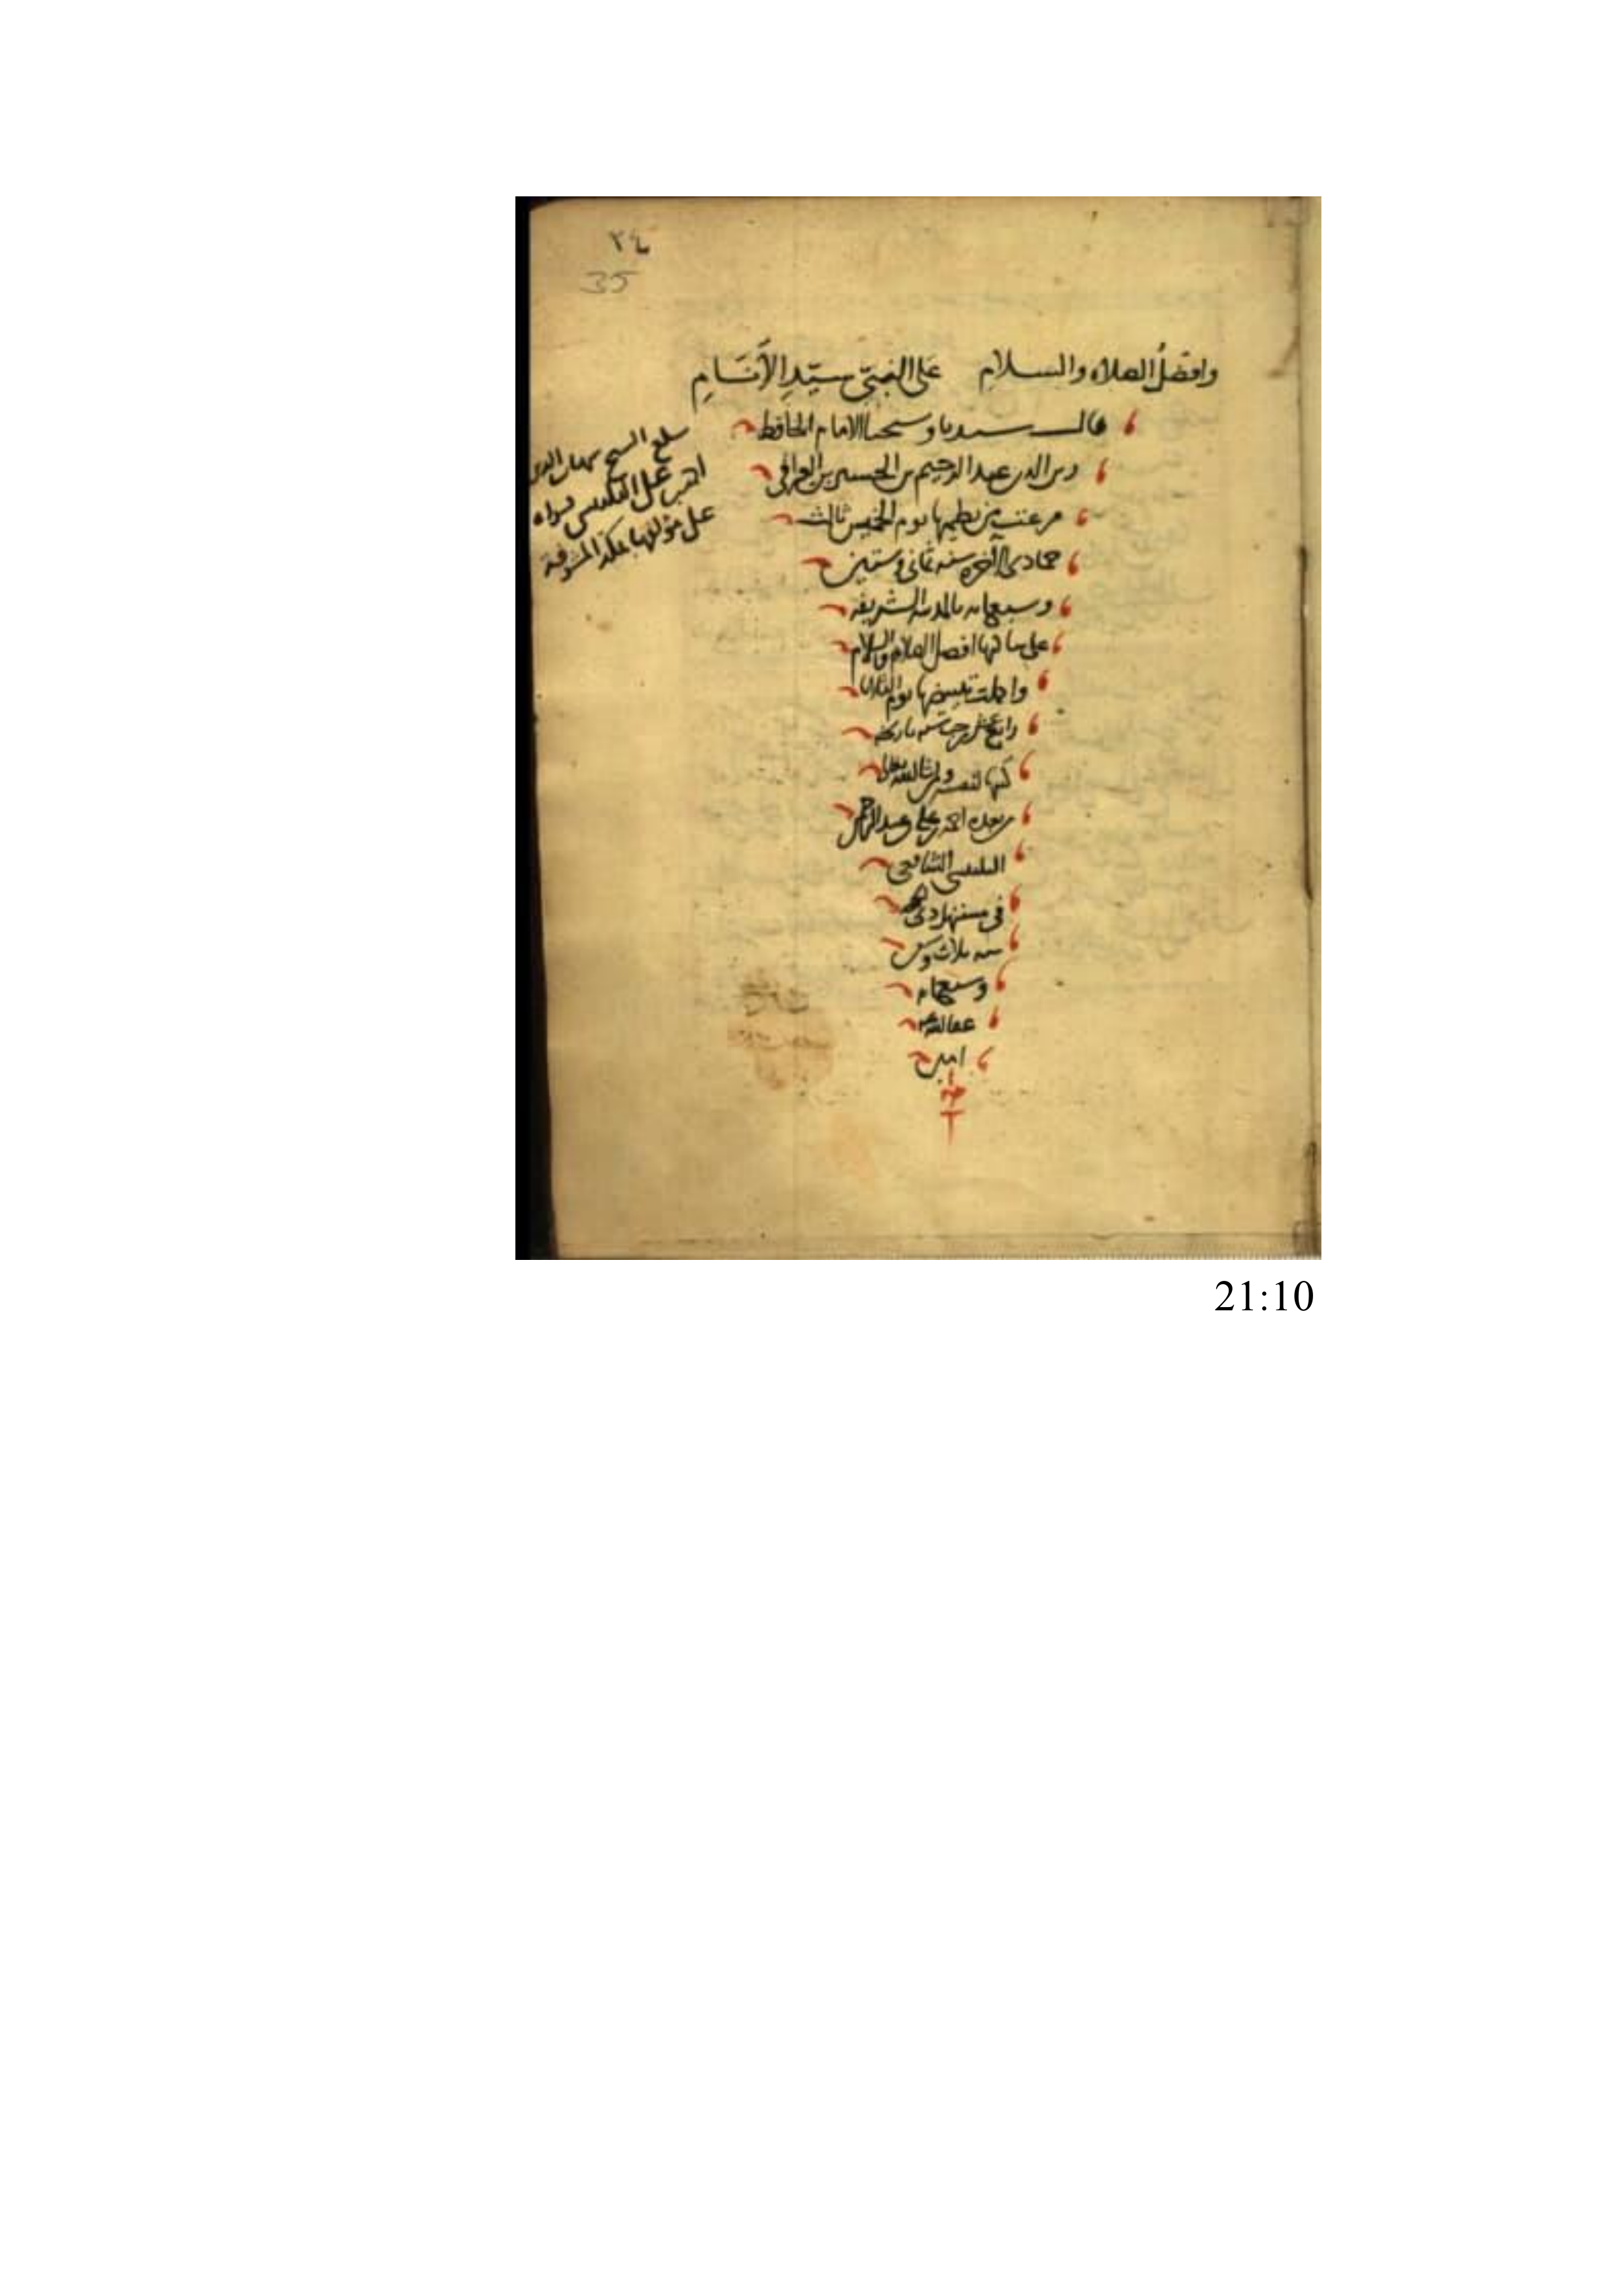 ٣٤
35
وافضل الصلاه والسلام على النبي سيد الأنام
قال سيدنا وشيخنا الامام الحافظ
زين الدين عبد الرحيم بن الحسين بن العراقي
فرغت من نظمها يوم الخميس ثالث
جمادى الآخره سنه ثماني وستين
وسبعمايه بالمدينه الشريفه
على ساكنها افضل الصلاه والسلام
واكملت تبييضها يوم
رابع عشر رجب سنه تاريخه
كتبها لنفسه ولمن شا الله تعالى
من بعده احمد بن علي بن عبد الرحمن
البلبيسي الشافعي
في مستهل ذي
سنه ثلاث وسبعين
وسبعمايه
عفا الله عنه
امين
بلغ الشيخ شهاب الدين
احمد بن علي البلبيسي قراه
على مؤلفها بمكه المشرفة
21:10